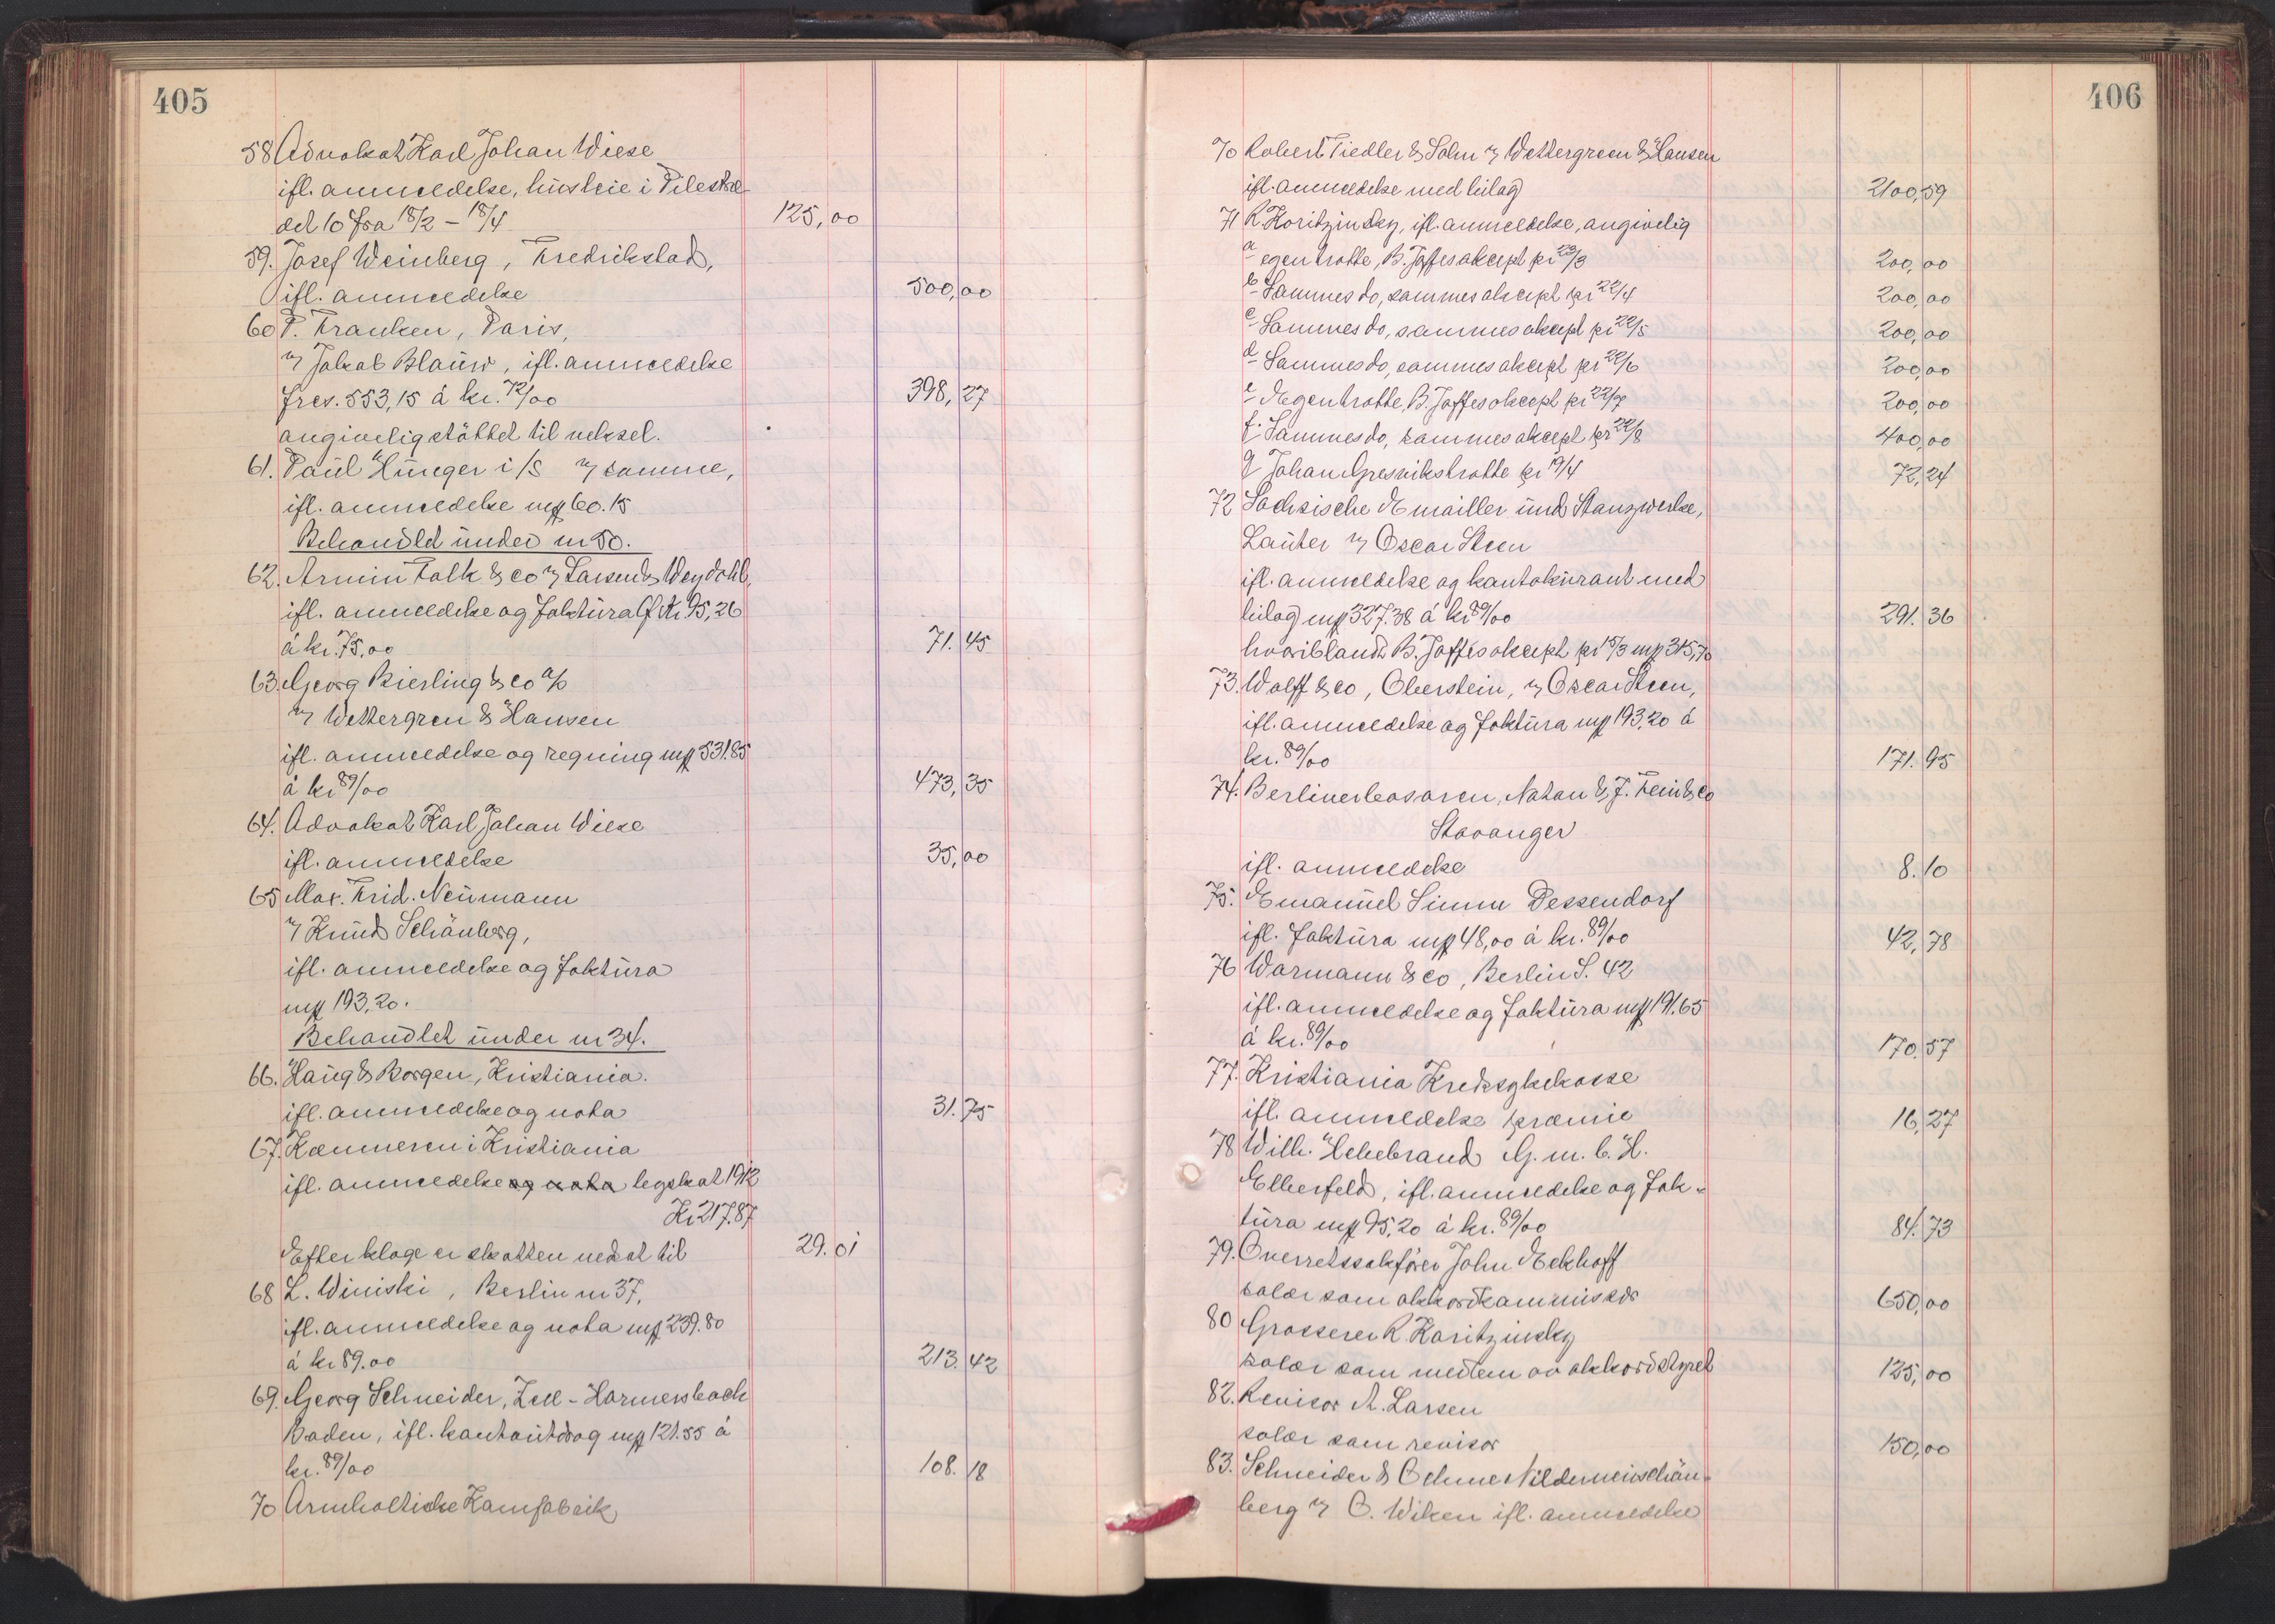 405
58 Advokat Karl Johan Wiese
ifl. anmeldelse, husleie i Pilestræ-
det 10 fra 18/2 – 18/4 125,00
59. Josef Weinberg, Fredrikstad,
ifl. anmeldelse 500,00
60 P. Franken, Paris,
v/ Jakob Blauw, ifl. anmeldelse
frcs. 553,15 á kr. 72/00 398,27
angivelig støttet til veksel.
61. Paul Hünger i/S v/ samme,
ifl. anmeldelse mk 60.15
Behandlet under nr 50.
62. Armin Falk & Co v/ Larsen & Weydahl
ifl. anmeldelse og faktura Ø.Kr. 95,26
á kr. 75,00 71.45
63. Georg Bierling & Co a/s
v/ Wettergren & Hansen
ifl. anmeldelse og regning mk 531.85
á kr 89/00 473,35
64. Advokat Karl Johan Wiese
ifl. anmeldelse 35,00
65 Max. Frid. Neumann
v/ Knud Schänberg,
ifl. anmeldelse og faktura
mk 193,20.
Behandlet under nr 34.
66. Haug & Borgen, Kristiania.
ifl. anmeldelse og nota 31.75
67. Kæmneren i Kristiania
ifl. anmeldelse og nota byskat 1912
Kr 217.87
Efter klage er skatten nedsat til 29.01
68 L. Winiski, Berlin nr 37,
ifl. anmeldelse og nota mk 239.80
á kr 89.00 213.42
69. Georg Schneider, Zell - Harmersbach
Baden, ifl. kontoutdrag mk 121.55 á
kr. 89/00 108.18
70 Arnholtiske Kamfabrik
406
70 Robert Fiedler & Sohn v/ Wettergreen & Hansen
ifl. anmeldelse med bilag 2100,59
71 R. Koritzinsky, ifl. anmeldelse, angivelig
a egen tratte, B. Jaffes aksept pr 22/3 200,00
b Sammes do, sammes aksept pr 22/4 200,00
c Sammes do, sammes aksept pr 22/5 200,00
d Sammes do, sammes aksept pr 22/6 200,00
e Egen tratte, B. Jaffes aksept pr 22/7 200,00
f. Sammes do, sammes aksept pr 22/8 400,00
g Johan Gresviks tratte pr 19/4 72,24
72 Sachsische Emailler und Stanzwerke,
Lauter v/ Oscar Steen
ifl. anmeldelse og kontokurant med
bilag mk 327.38 á kr 89/00 291.36
hvoriblandt B. Jaffes aksept pr 15/3 mk 315,70
73. Wolff & Co, Oberstein, v/ Oscar Steen,
ifl. anmeldelse og faktura mk 193.20 á
kr. 89/00 171.95
74. Berlinerbasaren, Natan & J. Fein & Co
Stavanger
ifl. anmeldelse 8.10
75. Emanuel Simm Dessendorf
ifl. faktura mk 48,00 á kr. 89/00 42,78
76 Warmann & Co, Berlin S. 42
ifl. anmeldelse og faktura mk 191.65
á kr. 89/00 170.57
77. Kristiania Kredssykekasse
ifl. anmeldelse præmie 16,27
78 Wilh. Hehebrand G. m. b. H.
Elberfeld, ifl. anmeldelse og fak-
tura mk 95,20 á kr. 89/00 84.73
79. Overretssakfører John Eckhoff
salær som akkordkommissær 650,00
80 Grosserer R. Koritzinsky
salær som medlem av akkordstyret 125,00
82. Revisor A. Larsen
salær som revisor 150,00
83. Schneider & Oehme Nildermeinschän-
berg v/ O. Wiken ifl. anmeldelse